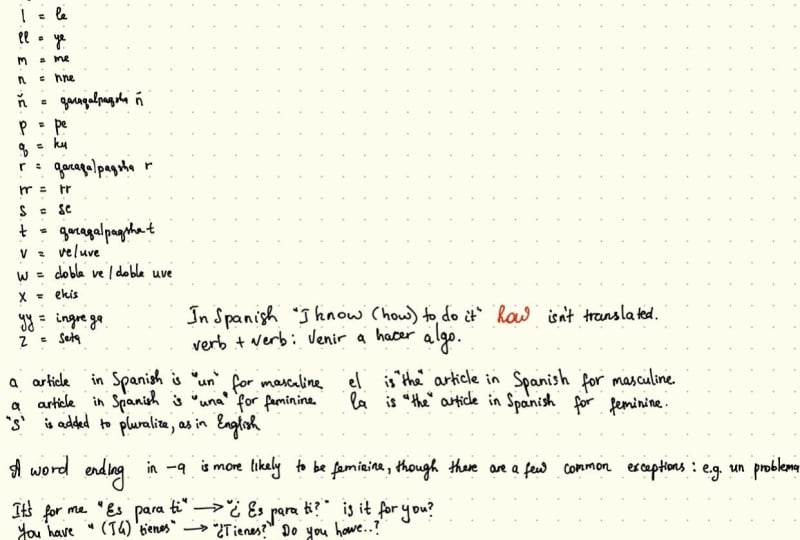 l = le
ll = ye
m = me
n = nne
ñ = qaraqalpaqsha ñ
p = pe
q = ku
r = qaraqalpaqsha r
rr = rr
s = se
t = qaraqalpaqsha t
v = ve/uve
w = doble ve / doble uve
x = ekis
yy = ingrega
z = seta
In Spanish "I know (how) to do it" how isn't translated.
verb + verb: Venir a hacer algo.
a article in Spanish is "un" for masculine el is "the" article in Spanish for masculine.
a article in Spanish is "una" for feminine. la is "the" article in Spanish for feminine.
"s" is added to pluralize, as in English
A word ending in -a is more likely to be feminine, though there are a few common exceptions: e.g. un problema
It's for me "Es para ti" → "¿Es para ti?" is it for you?
You have "(Tú) tienes" → "¿Tienes?" Do you have..?